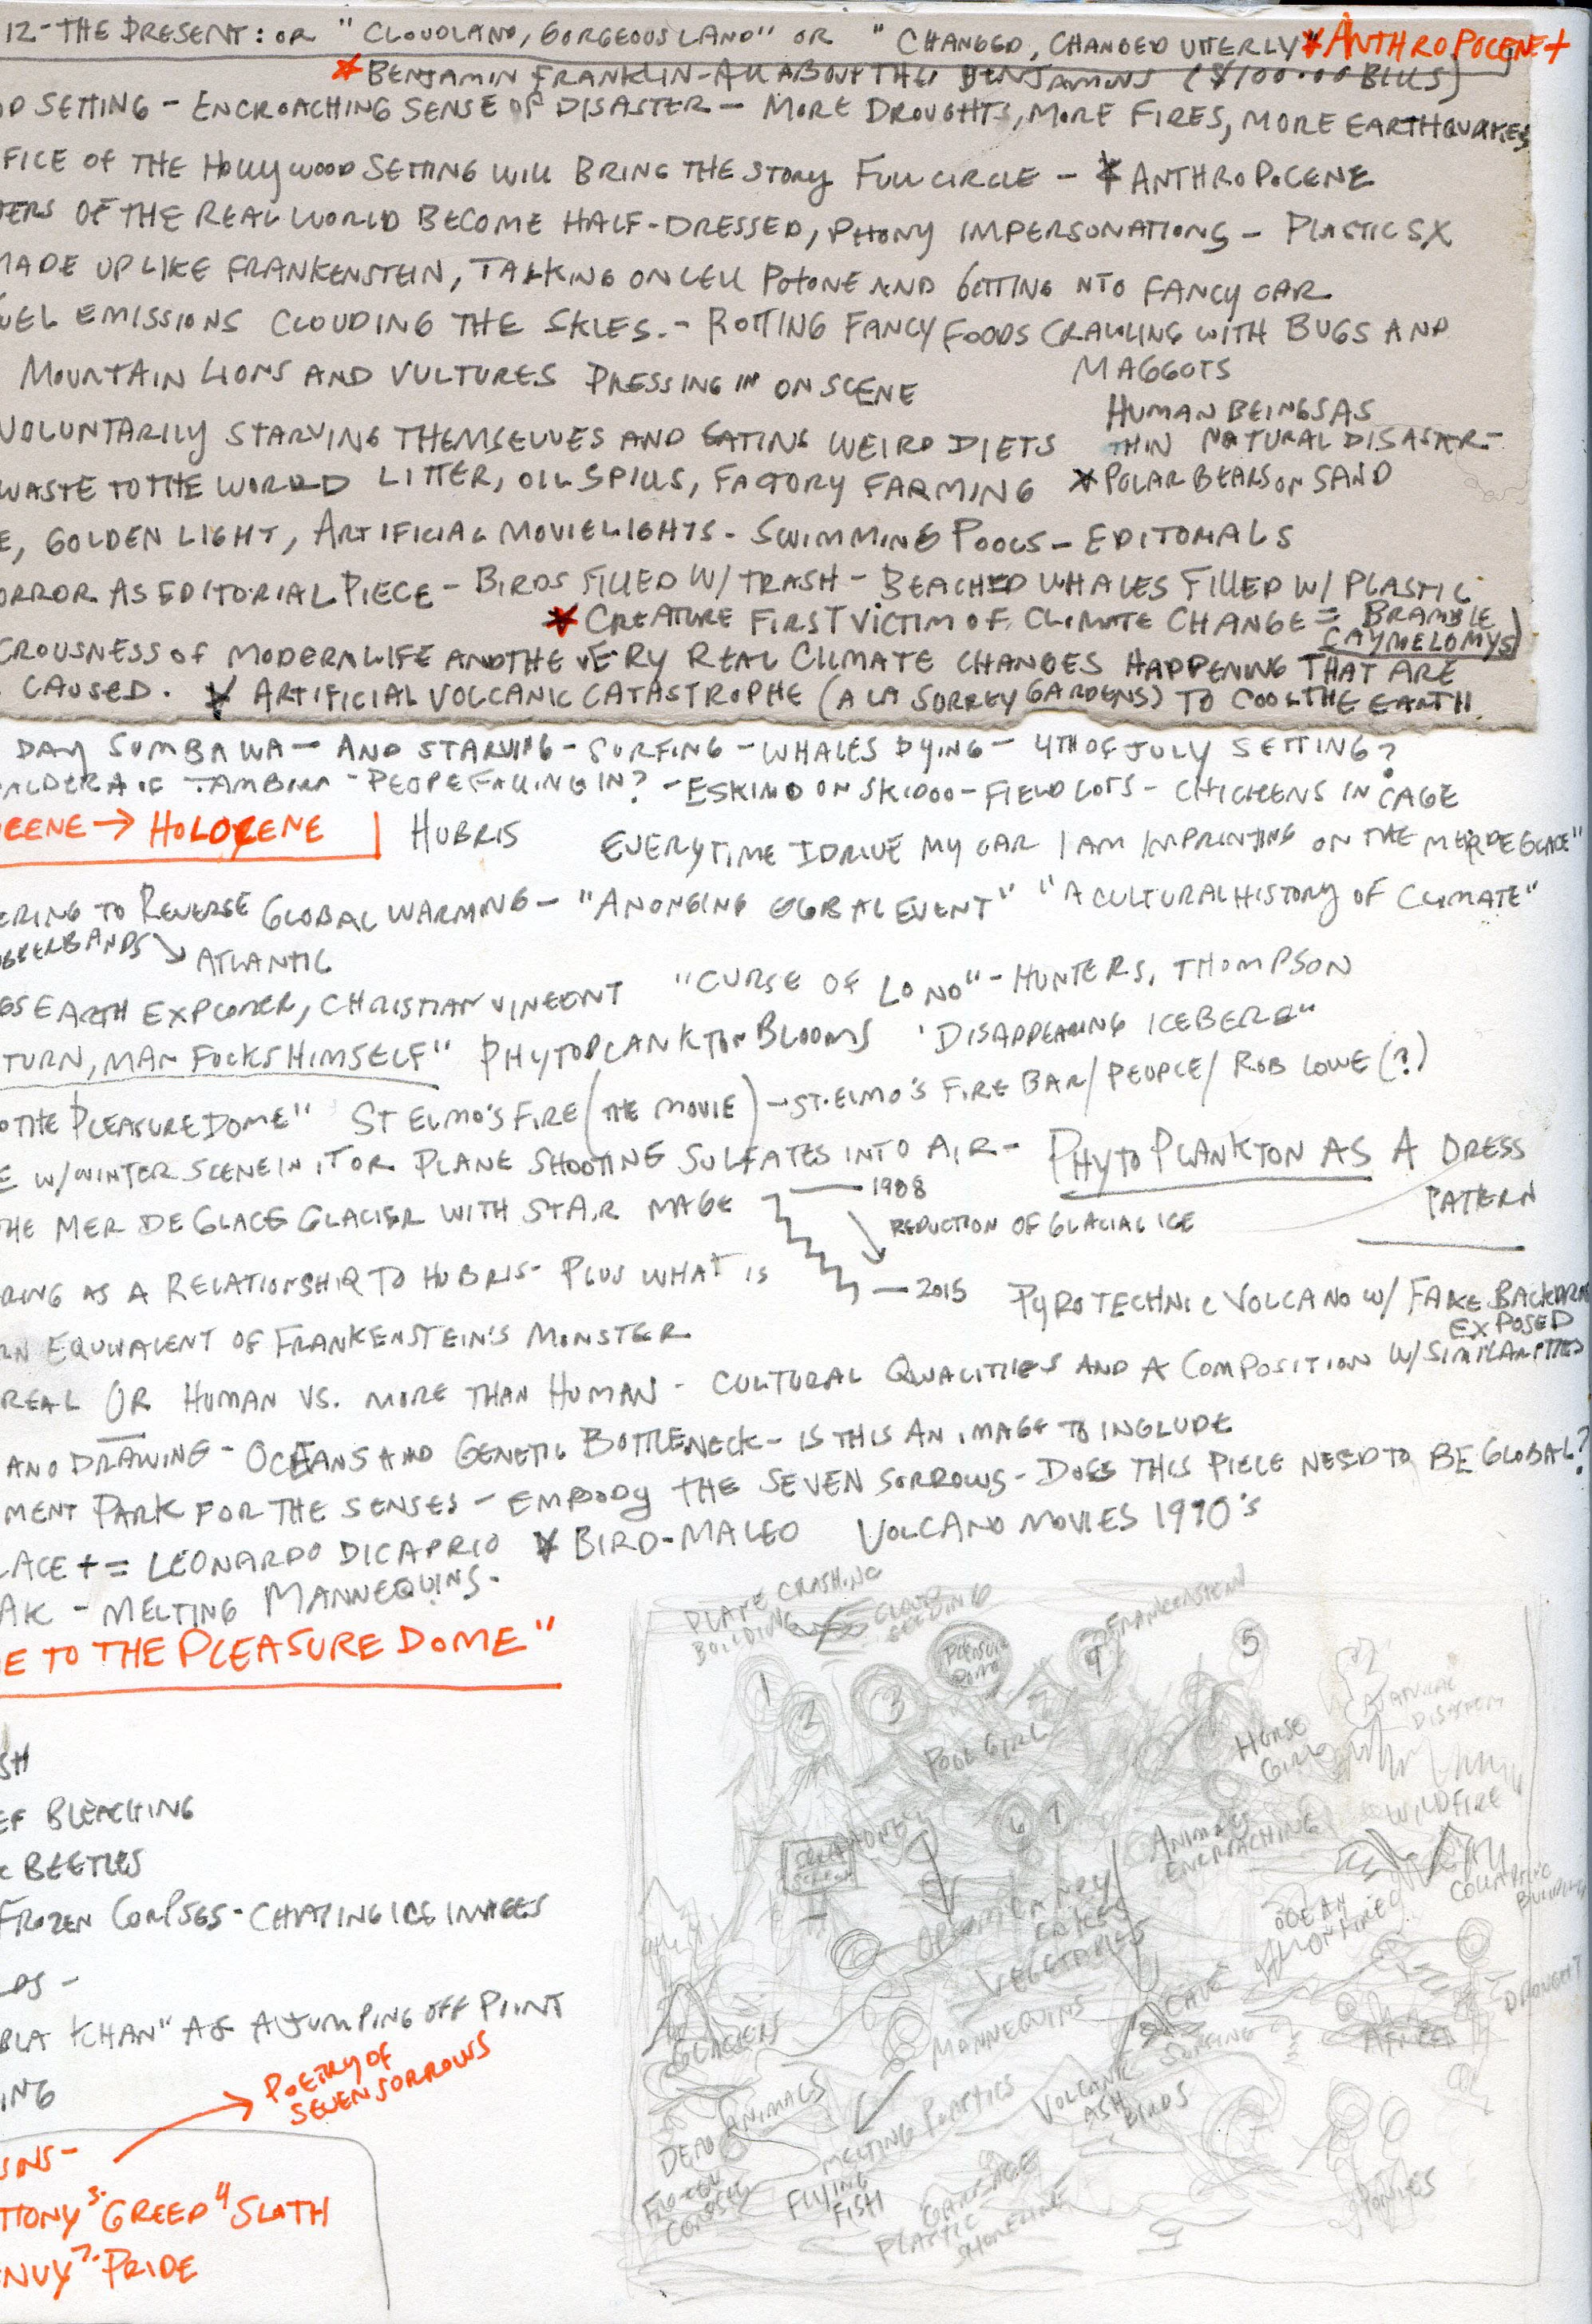 12-THE PRESENT: OR "CLOUDLAND, GORGEOUS LAND" OR "CHANGED, CHANGED UTTERLY * ANTHROPOCENE +
* BENJAMIN FRANKLIN-ALL ABOUT THE BENJAMINS ($100.00 BILLS)
OD SETTING - ENCROACHING SENSE OF DISASTER - MORE DROUGHTS, MORE FIRES, MORE EARTHQUAKES
FICE OF THE HOLLYWOOD SETTING WILL BRING THE STORY FULL CIRCLE - * ANTHROPOCENE
TERS OF THE REAL WORLD BECOME HALF-DRESSED, PHONY IMPERSONATIONS - PLASTIC SX
MADE UP LIKE FRANKENSTEIN, TALKING ON CELL PHONE AND GETTING NTO FANCY CAR
UEL EMISSIONS CLOUDING THE SKIES. - ROTTING FANCY FOODS CRAWLING WITH BUGS AND
MAGGOTS
MOUNTAIN LIONS AND VULTURES PRESSING IN ON SCENE
HUMAN BEINGS AS
VOLUNTARILY STARVING THEMSELVES AND EATING WEIRD DIETS
THIN NATURAL DISASTER-
WASTE TO THE WORLD LITTER, OIL SPILLS, FACTORY FARMING * POLAR BEARS ON SAND
E, GOLDEN LIGHT, ARTIFICIAL MOVIELIGHTS - SWIMMING POOLS - EDITORIALS
ORROR AS EDITORIAL PIECE - BIRDS FILLED W/ TRASH - BEACHED WHALES FILLED W/ PLASTIC
* CREATURE FIRST VICTIM OF CLIMATE CHANGE = BRAMBLE
CAYMELOMYS)
CROUSNESS OF MODERN LIFE AND THE VERY REAL CLIMATE CHANGES HAPPENING THAT ARE
CAUSED. * ARTIFICIAL VOLCANIC CATASTROPHE (A LA SURREY GARDENS) TO COOL THE EARTH
DAY SUMBAWA - AND STARVING - SURFING - WHALES DYING - 4TH OF JULY SETTING?
ALDERA OF TAMBORA - PEOPE FALLING IN? - ESKIMO ON SKIDOO - FIELD LOTS - CHICKENS IN CAGE
CENE → HOLOCENE | HUBRIS
EVERYTIME I DRIVE MY CAR I AM IMPRINTING ON THE MER DE GLACE"
ERING TO REVERSE GLOBAL WARMING - "AN ONGING GLOBAL EVENT" "A CULTURAL HISTORY OF CLIMATE"
BBERBANDS → ATLANTIC
GS EARTH EXPLORER, CHRISTIAN VINCENT "CURSE OF LONO" - HUNTER S. THOMPSON
TURN, MAN FUCKS HIMSELF" PHYTOPLANKTON BLOOMS "DISAPPEARING ICEBERG"
O THE PLEASURE DOME" ST ELMO'S FIRE (THE MOVIE) - ST. ELMO'S FIRE BAR/PEOPLE/ROB LOWE (?)
E W/WINTER SCENE IN IT OR PLANE SHOOTING SULFATES INTO AIR - PHYTOPLANKTON AS A DRESS
PATERN
THE MER DE GLACE GLACIER WITH STAIR MAGE
1908
REDUCTION OF GLACIAL ICE
2015
RING AS A RELATIONSHIP TO HUBRIS - PLUS WHAT IS
PYROTECHNIC VOLCANO W/ FAKE BACKDROP
EXPOSED
RN EQUIVALENT OF FRANKENSTEIN'S MONSTER
REAL OR HUMAN VS. MORE THAN HUMAN - CULTURAL QUALITIES AND A COMPOSITION W/ SIMILARITIES
AND DRAWING - OCEANS AND GENETIC BOTTLENECK - IS THIS AN IMAGE TO INCLUDE
MENT PARK FOR THE SENSES - EMBODY THE SEVEN SORROWS - DOES THIS PIECE NEED TO BE GLOBAL?
LACE + = LEONARDO DICAPRIO * BIRD-MALEO VOLCANO MOVIES 1990'S
AK - MELTING MANNEQUINS.
E TO THE PLEASURE DOME"
SH
EF BLEACHING
K BEETLES
FROZEN CORPSES - CHATING ICE IMAGES
LDS -
BLA KHAN" AS A JUMPING OFF POINT
ING
POETRY OF
SEVEN SORROWS
SINS-
TTONY 3. GREED 4 SLOTH
NVY 7. PRIDE
PLANE CRASHING
BUILDING
CLOUD
SEEDING
PLEASURE
DOME
FRANKENSTEIN
1
2
3
5
POOL GIRL
HORSE
GIRL
NATURAL
DISASTERS
WILDFIRE
6
7
ANIMALS
ENCROACHING
COLLAPSING
BUILDING
OCEAN
ON FIRE
VEGETABLES
MANNEQUINS
CAVE
SURFING
DROUGHT
AFRICA
GLACIERS
DEAD ANIMALS
MELTING PLASTICS
VOLCANIC
ASH
BIRDS
FROZEN
CORPSE
FLYING
FISH
GARBAGE
PLASTIC
SHORELINE
PONIES